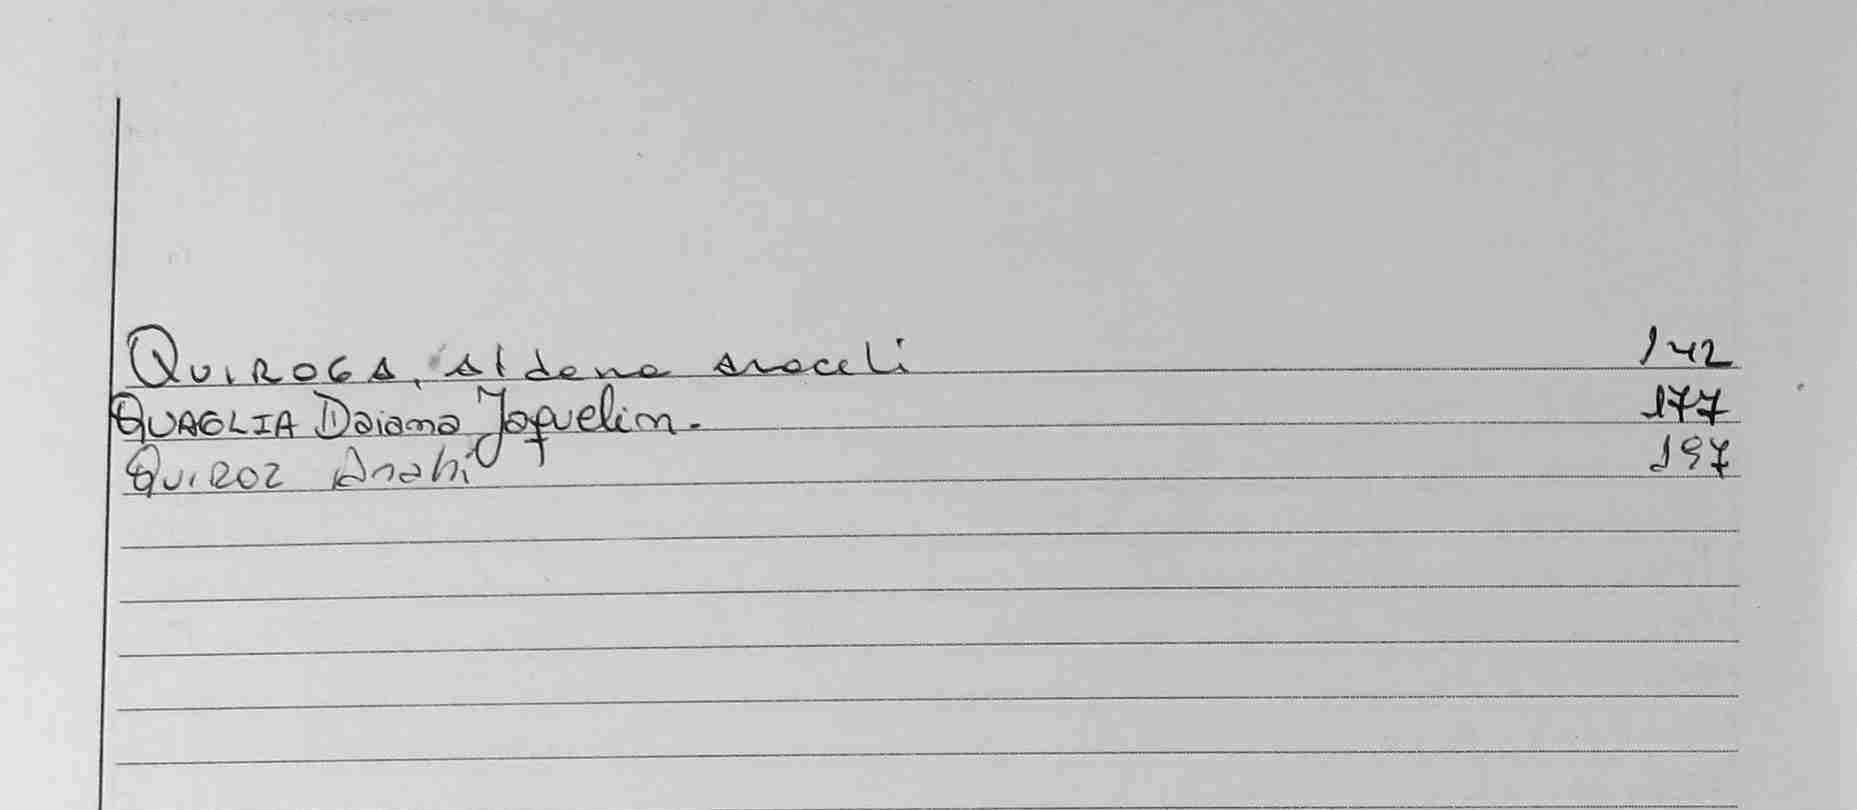 QUIROGA, Aldana Araceli 142
QUAGLIA Daiana Jaquelin. 177
QUIROZ Anahi 197